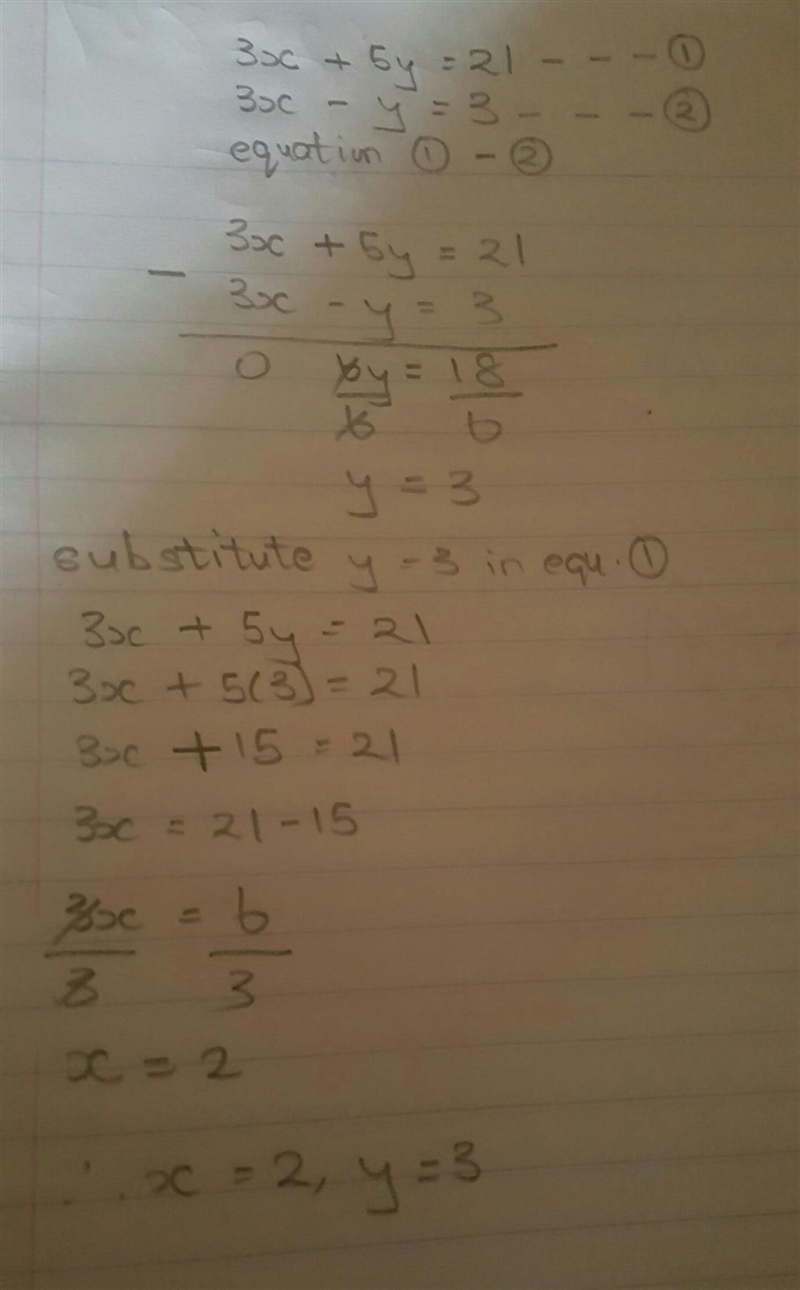 3x + 5y = 21 - - - ①
3x - y = 3 - - - ②
equation ① - ②
3x + 5y = 21
- 3x - y = 3
0 6y = 18
6 6
y = 3
substitute y = 3 in equ. ①
3x + 5y = 21
3x + 5(3) = 21
3x + 15 = 21
3x = 21 - 15
3x = 6
3 3
x = 2
∴ x = 2, y = 3